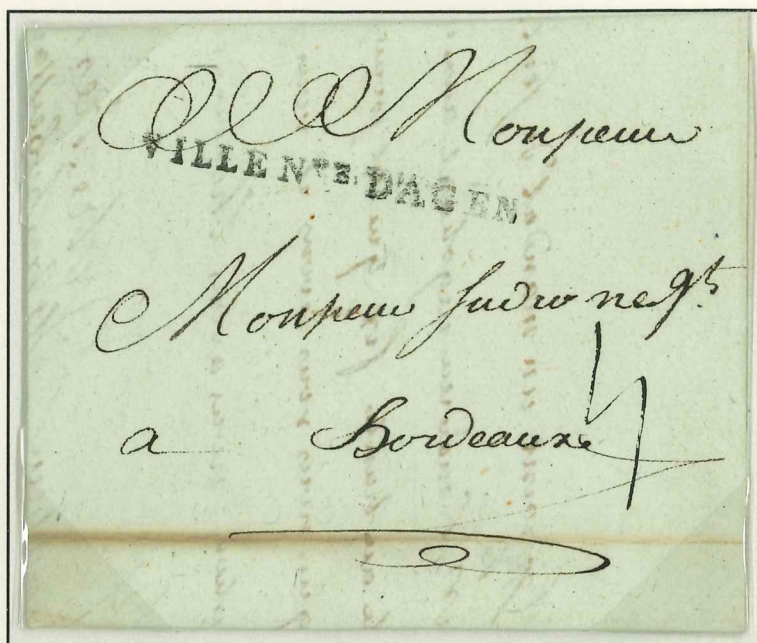 Monsieur
VILLE Nve. D'AGEN
Monsieur Sudro neg.t
a Bordeaux
4